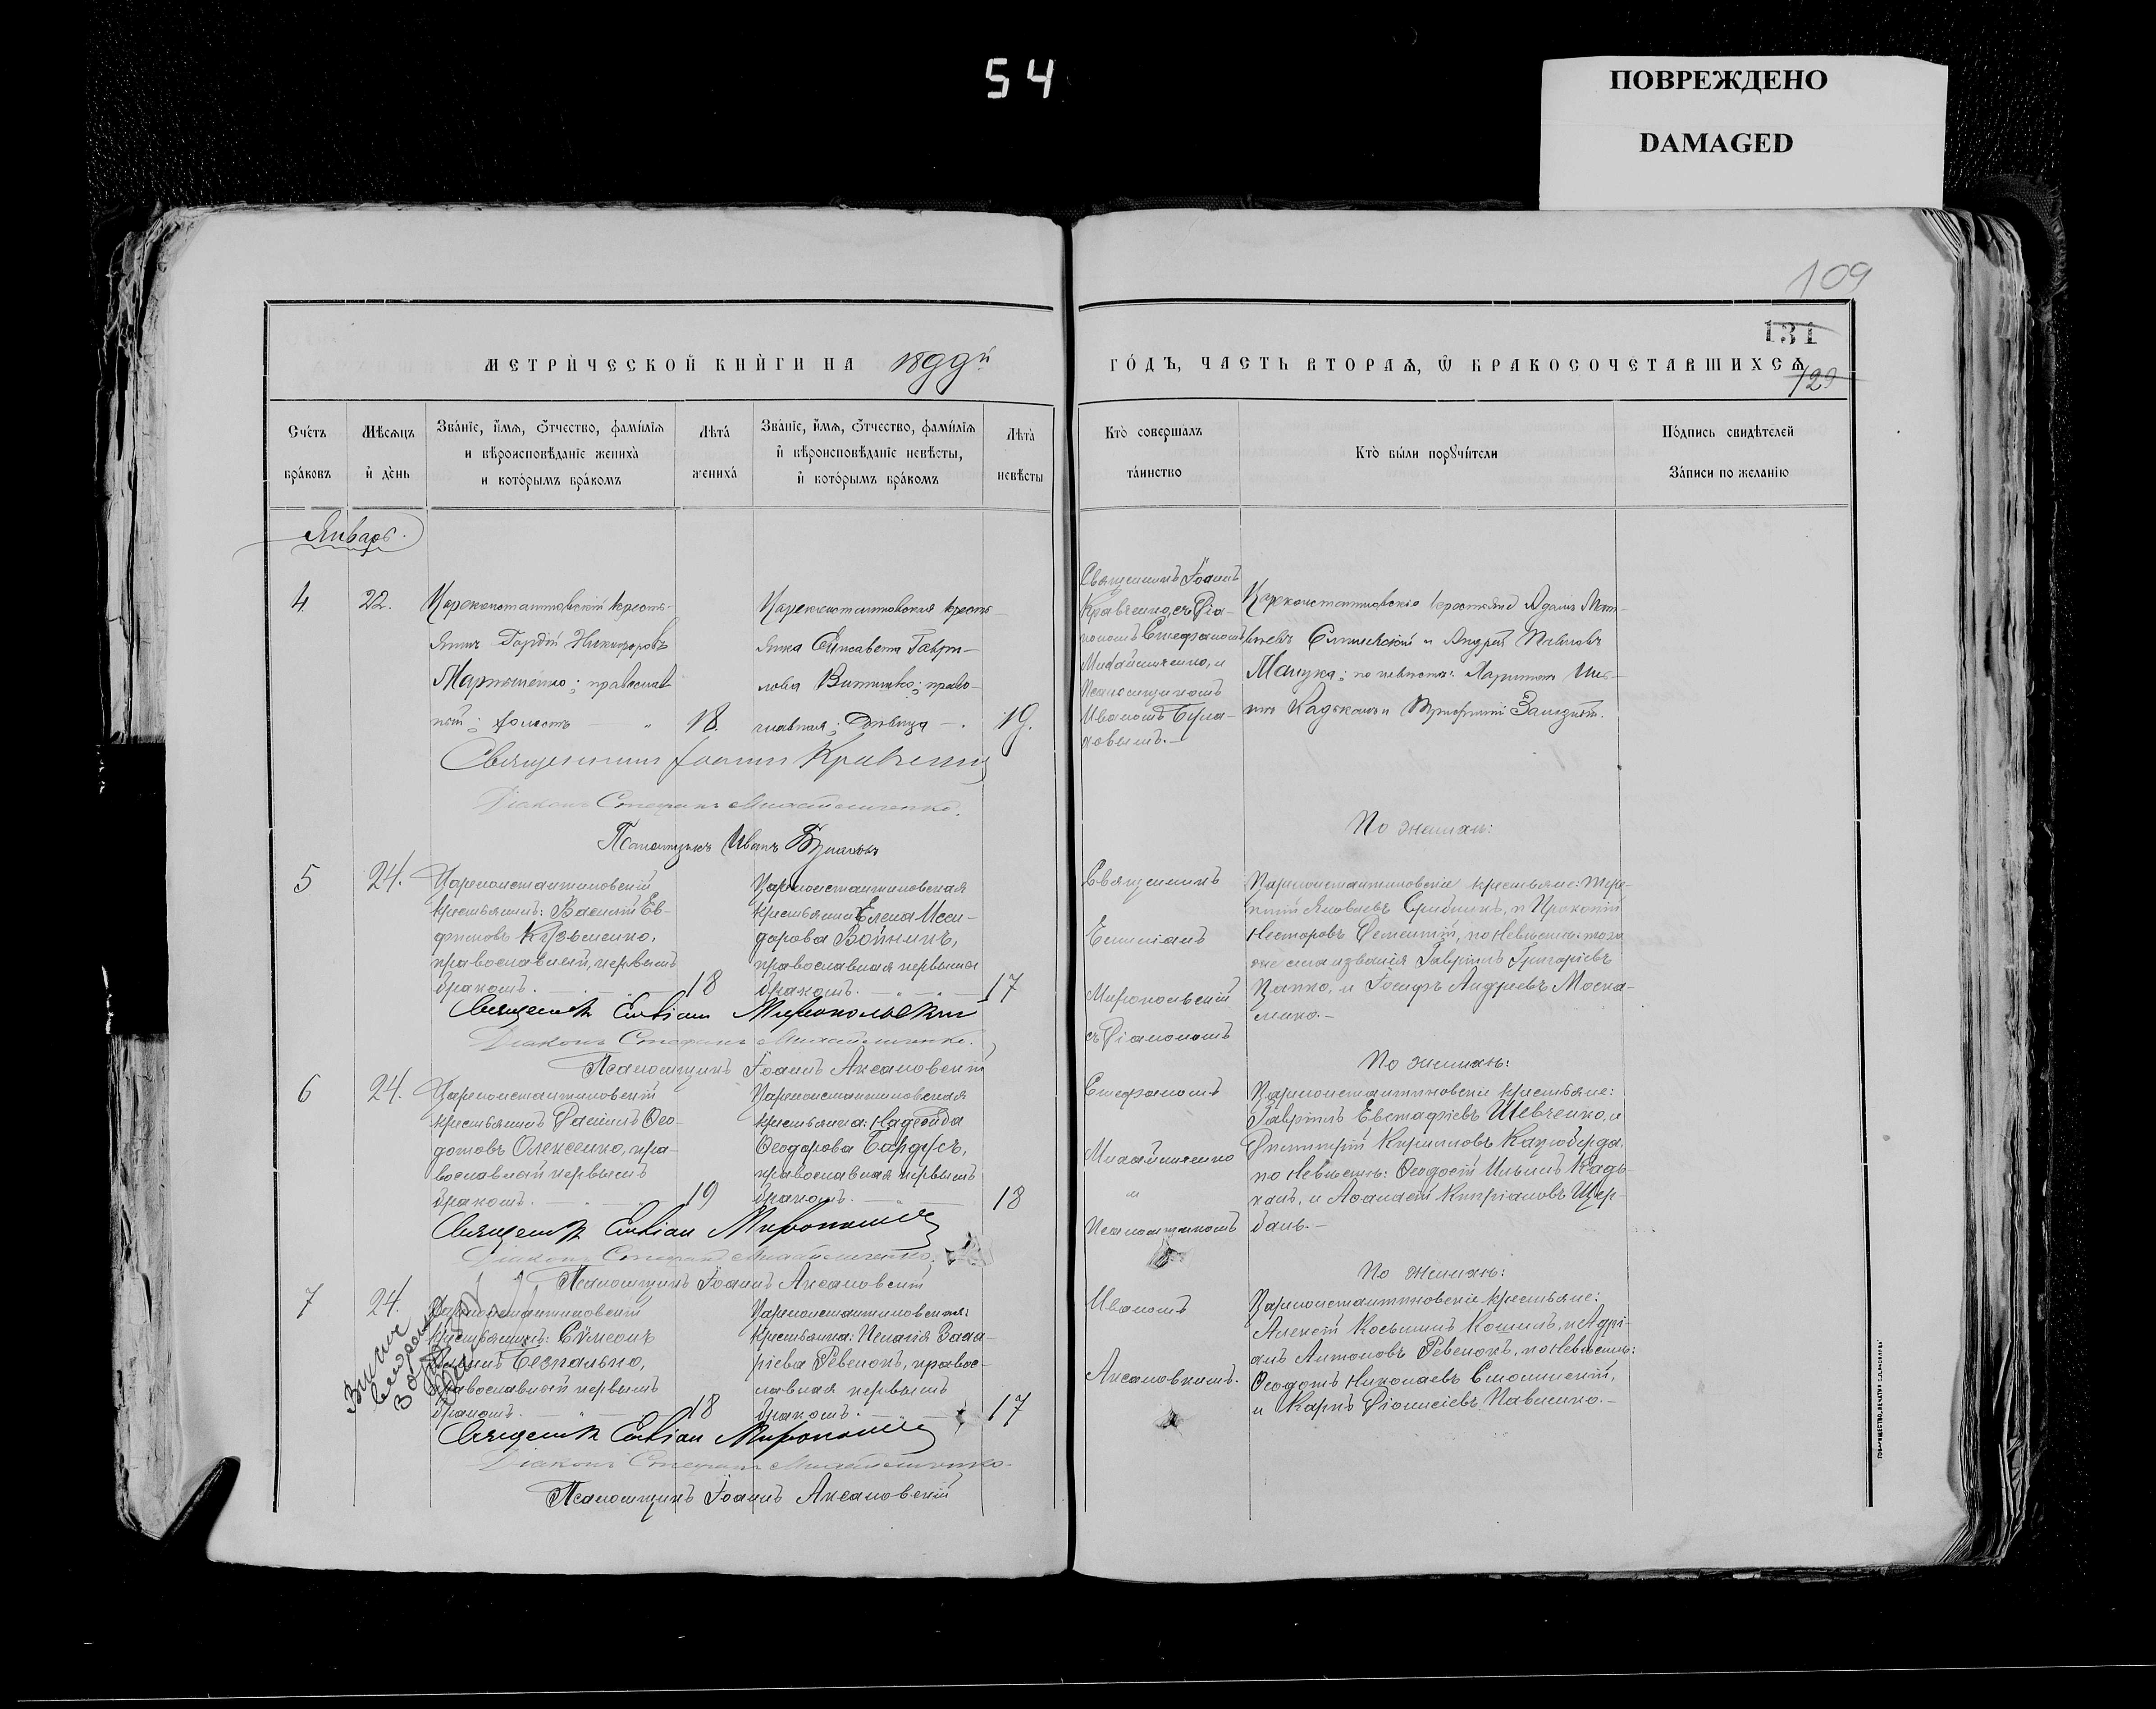 54
ПОВРЕЖДЕНО
DAMAGED
109
131
129
МЕТРИ́ЧЕСКОЙ КНИ́ГИ НА 1899й
ГО́ДЪ, ЧАСТЬ ВТОРАѦ, Ѿ БРАКОСОЧЕТАВШИХСѦ
Сче́тъ
бра́ковъ
Мѣсѧцъ
и҆ де́нь
Зва́нїе, и҆́мѧ, ѻ҆́тчество, фами́лїѧ
и вѣроисповѣ́данїе жениха̀
и кото́рымъ бра́комъ
Лѣта̀
жениха̀
Зва́нїе, и҆́мѧ, ѻ҆́тчество, фами́лїѧ
и҆ вѣроисповѣ́данїе невѣ́сты,
и҆ кото́рымъ бра́комъ
Лѣта̀
невѣ́сты
Кто̀ соверша́лъ
та́инство
Кто̀ бы́ли порꙋчи́тели
По́дпись свидѣ́телей
За́писи по жела́нїю
Январь.
4.
22.
Цареконстантиновскій кресть-
янинъ Гордій Никифоровъ
Мартыненко; православ-
ный; холостъ
18.
Цареконстантиновская кресть-
янка Елисавета Гаври-
лова ; право-
славная; Дѣвица
19.
Священникъ Іоаннъ
Кравченко, съ Діа-
кономъ Стефаномъ
Михайличенко, и
Псаломщикомъ
Иваномъ
Цареконстантиновскіе крестьяне Адамъ
и Андрей
; по невѣстѣ: Харитонъ
Кадькалъ и Григорій
Священникъ Іоаннъ Кравченко
Діаконъ Стефанъ Михайличенко.
Псаломщикъ Иванъ
По женихѣ:
5
24.
Цареконстантиновскій
крестьянинъ: Василій Ев-
фимовъ Кузьменко,
православный, первымъ
бракомъ.
18
Цареконстантиновская
крестьянка Елена Иси-
дорова Войникъ,
православная первымъ
бракомъ.
17
Священникъ
Емиліанъ
Миропольскій
съ Діакономъ
Цареконстантиновскіе крестьяне: Тере-
нтій Яковлевъ Срибникъ, и Прокопій
Несторовъ Дементій, по невѣстѣ: того
же званія Гавріилъ Григоріевъ
Цапко, и Іосифъ Андреевъ Моска-
ленко.
Священникъ Емиліанъ Миропольскій
Діаконъ Стефанъ Михайличенко.
Псаломщикъ Іоаннъ Аксановскій
По женихѣ:
6
24.
Цареконстантиновскій
крестьянинъ Даніилъ Ѳео-
дотовъ Олексенко, пра-
вославный первымъ
бракомъ.
19
Цареконстантиновская
крестьянка: Надежда
Ѳеодорова Бардусъ,
православная первымъ
бракомъ.
18
Стефаномъ
Михайличенко
и
Псаломщикомъ
Цареконстантиновскіе крестьяне:
Гавріилъ Евстафіевъ Шевченко, и
Димитрій Кирилловъ Кацюберда.
по невѣстѣ: Ѳеодосій Ильинъ Кадь-
калъ, и Аѳанасій Кипріановъ Щер-
бань.
Священникъ Емиліанъ Миропольскій
Діаконъ Стефанъ Михайличенко.
Псаломщикъ Іоаннъ Аксановскій
По женихѣ:
7
24.
Цареконстантиновскій
крестьянинъ: Сѵмеонъ
Безпалько,
православный первымъ
бракомъ.
18
Цареконстантиновская
крестьянка: Пелагія Заха-
ріева Ревенокъ, правос-
лавная первымъ
бракомъ.
17
Иваномъ
Аксановскимъ.
Цареконстантиновскіе крестьяне:
Алексій Косьминъ Кошиль, и Адрі-
анъ Антоновъ Ревенокъ, по невѣстѣ:
Ѳеодотъ Николаевъ Смолинскій,
и Карпъ Діонисіевъ Павленко.
Священникъ Емиліанъ Миропольскій
Діаконъ Стефанъ Михайличенко
Псаломщикъ Іоаннъ Аксановскій